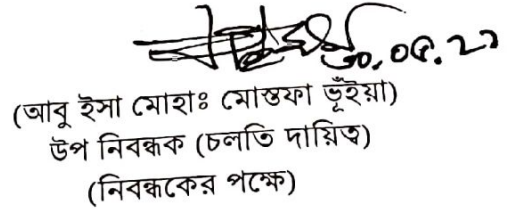 ৩০.০৫.২২
(আবু ইসা মোহাঃ মোস্তফা ভূঁইয়া)
উপ নিবন্ধক (চলতি দায়িত্ব)
(নিবন্ধকের পক্ষে)